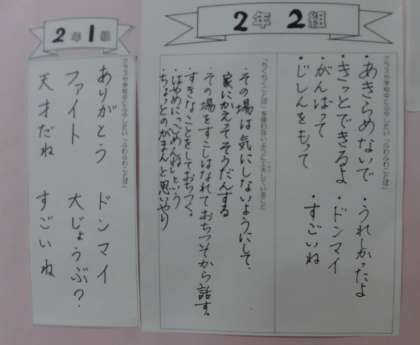 2年2組
・あきらめないで ・うれしかったよ
・きっとできるよ ・ドンマイ
・がんばって ・すごいね
・じしんをもって
・その場は気にしないようにして、
家にかえてそうだんする
・その場をすこしはなれておちついてから話す。
・すきなことをしておちつく。
・はやめに、「ごめんね」という
・ちょっとのがまんと思いやり
2年1組
ありがとう ドンマイ
ファイト 大じょうぶ?
天才だね すごいね